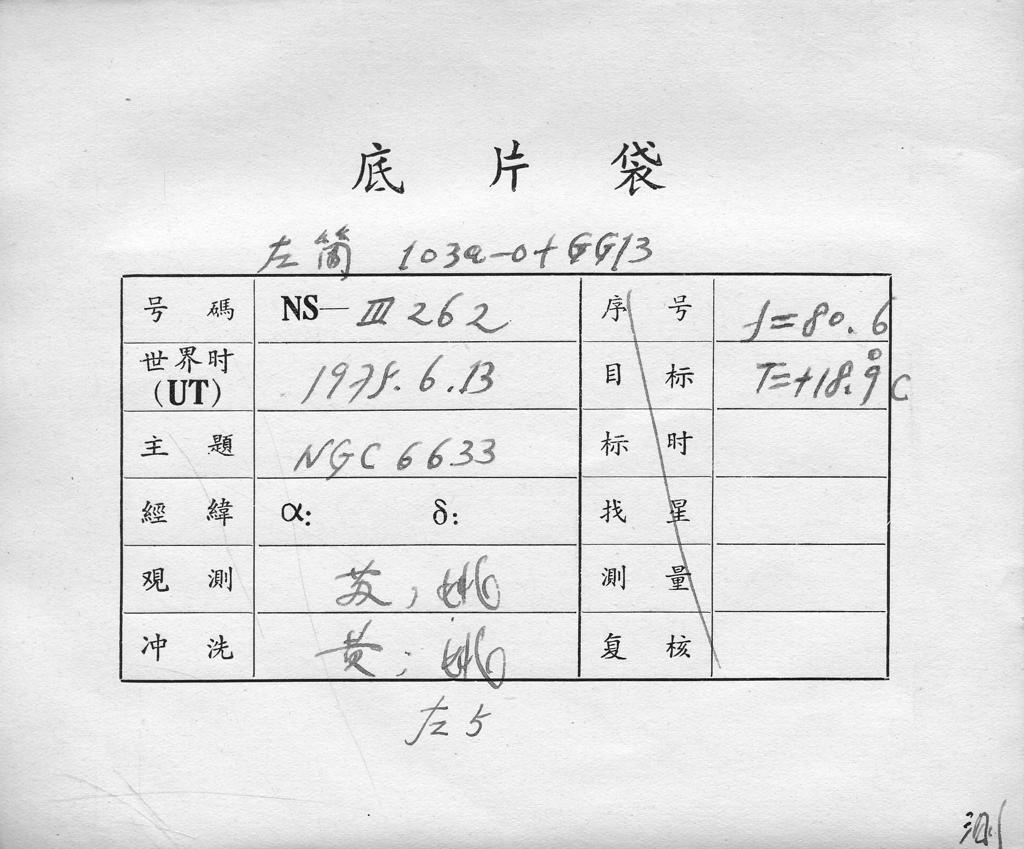 底片袋
左筒 103a-0+GG13
号碼 NS—III 262 序号 f=80.6
世界时(UT) 1978.6.13 目标 T=+18.9°C
主題 NGC 6633 标时
經緯 α: δ: 找星
观測 苏; 姚 測量
冲洗 黄; 姚 复核
左5
测